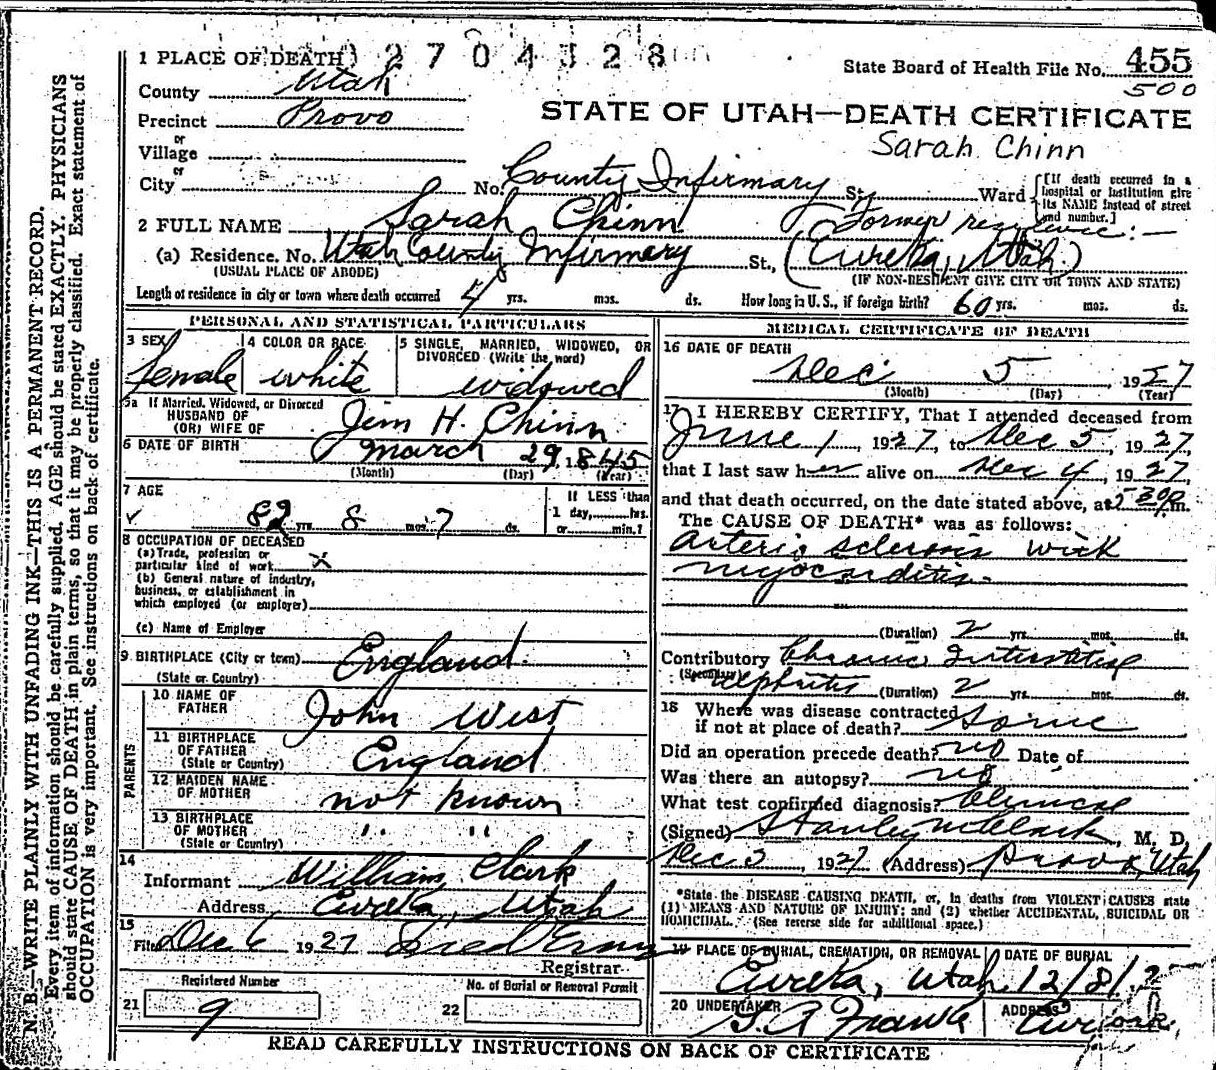 1 PLACE OF DEATH 2704328
State Board of Health File No. 455
500
County Utah
STATE OF UTAH—DEATH CERTIFICATE
Precinct Provo
Sarah Chinn
or
Village
or
City No. County Infirmary St., Ward
[If death occurred in a hospital or institution give its NAME instead of street and number.]
2 FULL NAME Sarah Chinn
(Former residence:—
(a) Residence. No. Utah County Infirmary St., Eureka, Utah)
(USUAL PLACE OF ABODE) (IF NON-RESIDENT GIVE CITY OR TOWN AND STATE)
Length of residence in city or town where death occurred 4 yrs. mos. ds. How long in U.S., if foreign birth? 60 yrs. mos. ds.
PERSONAL AND STATISTICAL PARTICULARS
3 SEX female
4 COLOR OR RACE white
5 SINGLE, MARRIED, WIDOWED, OR DIVORCED (Write the word) widowed
5a If Married, Widowed, or Divorced
HUSBAND OF
(OR) WIFE OF Jim H. Chinn
6 DATE OF BIRTH March 29, 1845
(Month) (Day) (Year)
7 AGE 82 yrs. 8 mos. 7 ds.
If LESS than
1 day, hrs.
or min.?
8 OCCUPATION OF DECEASED
(a) Trade, profession or
particular kind of work x
(b) General nature of industry,
business, or establishment in
which employed (or employer)
(c) Name of Employer
9 BIRTHPLACE (City or town) England
(State or Country)
PARENTS
10 NAME OF
FATHER John West
11 BIRTHPLACE
OF FATHER England
(State or Country)
12 MAIDEN NAME
OF MOTHER not known
13 BIRTHPLACE
OF MOTHER " "
(State or Country)
14
Informant William Clark
Address Eureka, Utah
15
Filed Dec 6 1927 Fred
Registrar
Registered Number
21 9
No. of Burial or Removal Permit
22
MEDICAL CERTIFICATE OF DEATH
16 DATE OF DEATH
Dec 5, 1927
(Month) (Day) (Year)
17 I HEREBY CERTIFY, That I attended deceased from
June 1, 1927, to Dec 5, 1927,
that I last saw her alive on Dec 4, 1927,
and that death occurred, on the date stated above, at 5 30p m.
The CAUSE OF DEATH* was as follows:
Arterio sclerosis with
myocarditis.
(Duration) 2 yrs. mos. ds.
Contributory Chronic Interstitial
(Secondary) nephritis (Duration) 2 yrs. mos. ds.
18 Where was disease contracted
if not at place of death? Same
Did an operation precede death? no Date of
Was there an autopsy? no
What test confirmed diagnosis? Clinical
(Signed) Stanley M Clark, M. D.
Dec 5 1927 (Address) Provo, Utah
*State the DISEASE CAUSING DEATH, or, in deaths from VIOLENT CAUSES state
(1) MEANS AND NATURE OF INJURY; and (2) whether ACCIDENTAL, SUICIDAL OR
HOMICIDAL. (See reverse side for additional space.)
19 PLACE OF BURIAL, CREMATION, OR REMOVAL Eureka, Utah
DATE OF BURIAL 12/8/2
20 UNDERTAKER
ADDRESS Eureka,
READ CAREFULLY INSTRUCTIONS ON BACK OF CERTIFICATE
N. B.—WRITE PLAINLY WITH UNFADING INK—THIS IS A PERMANENT RECORD.
Every item of information should be carefully supplied. AGE should be stated EXACTLY. PHYSICIANS
should state CAUSE OF DEATH in plain terms, so that it may be properly classified. Exact statement of
OCCUPATION is very important. See instructions on back of certificate.